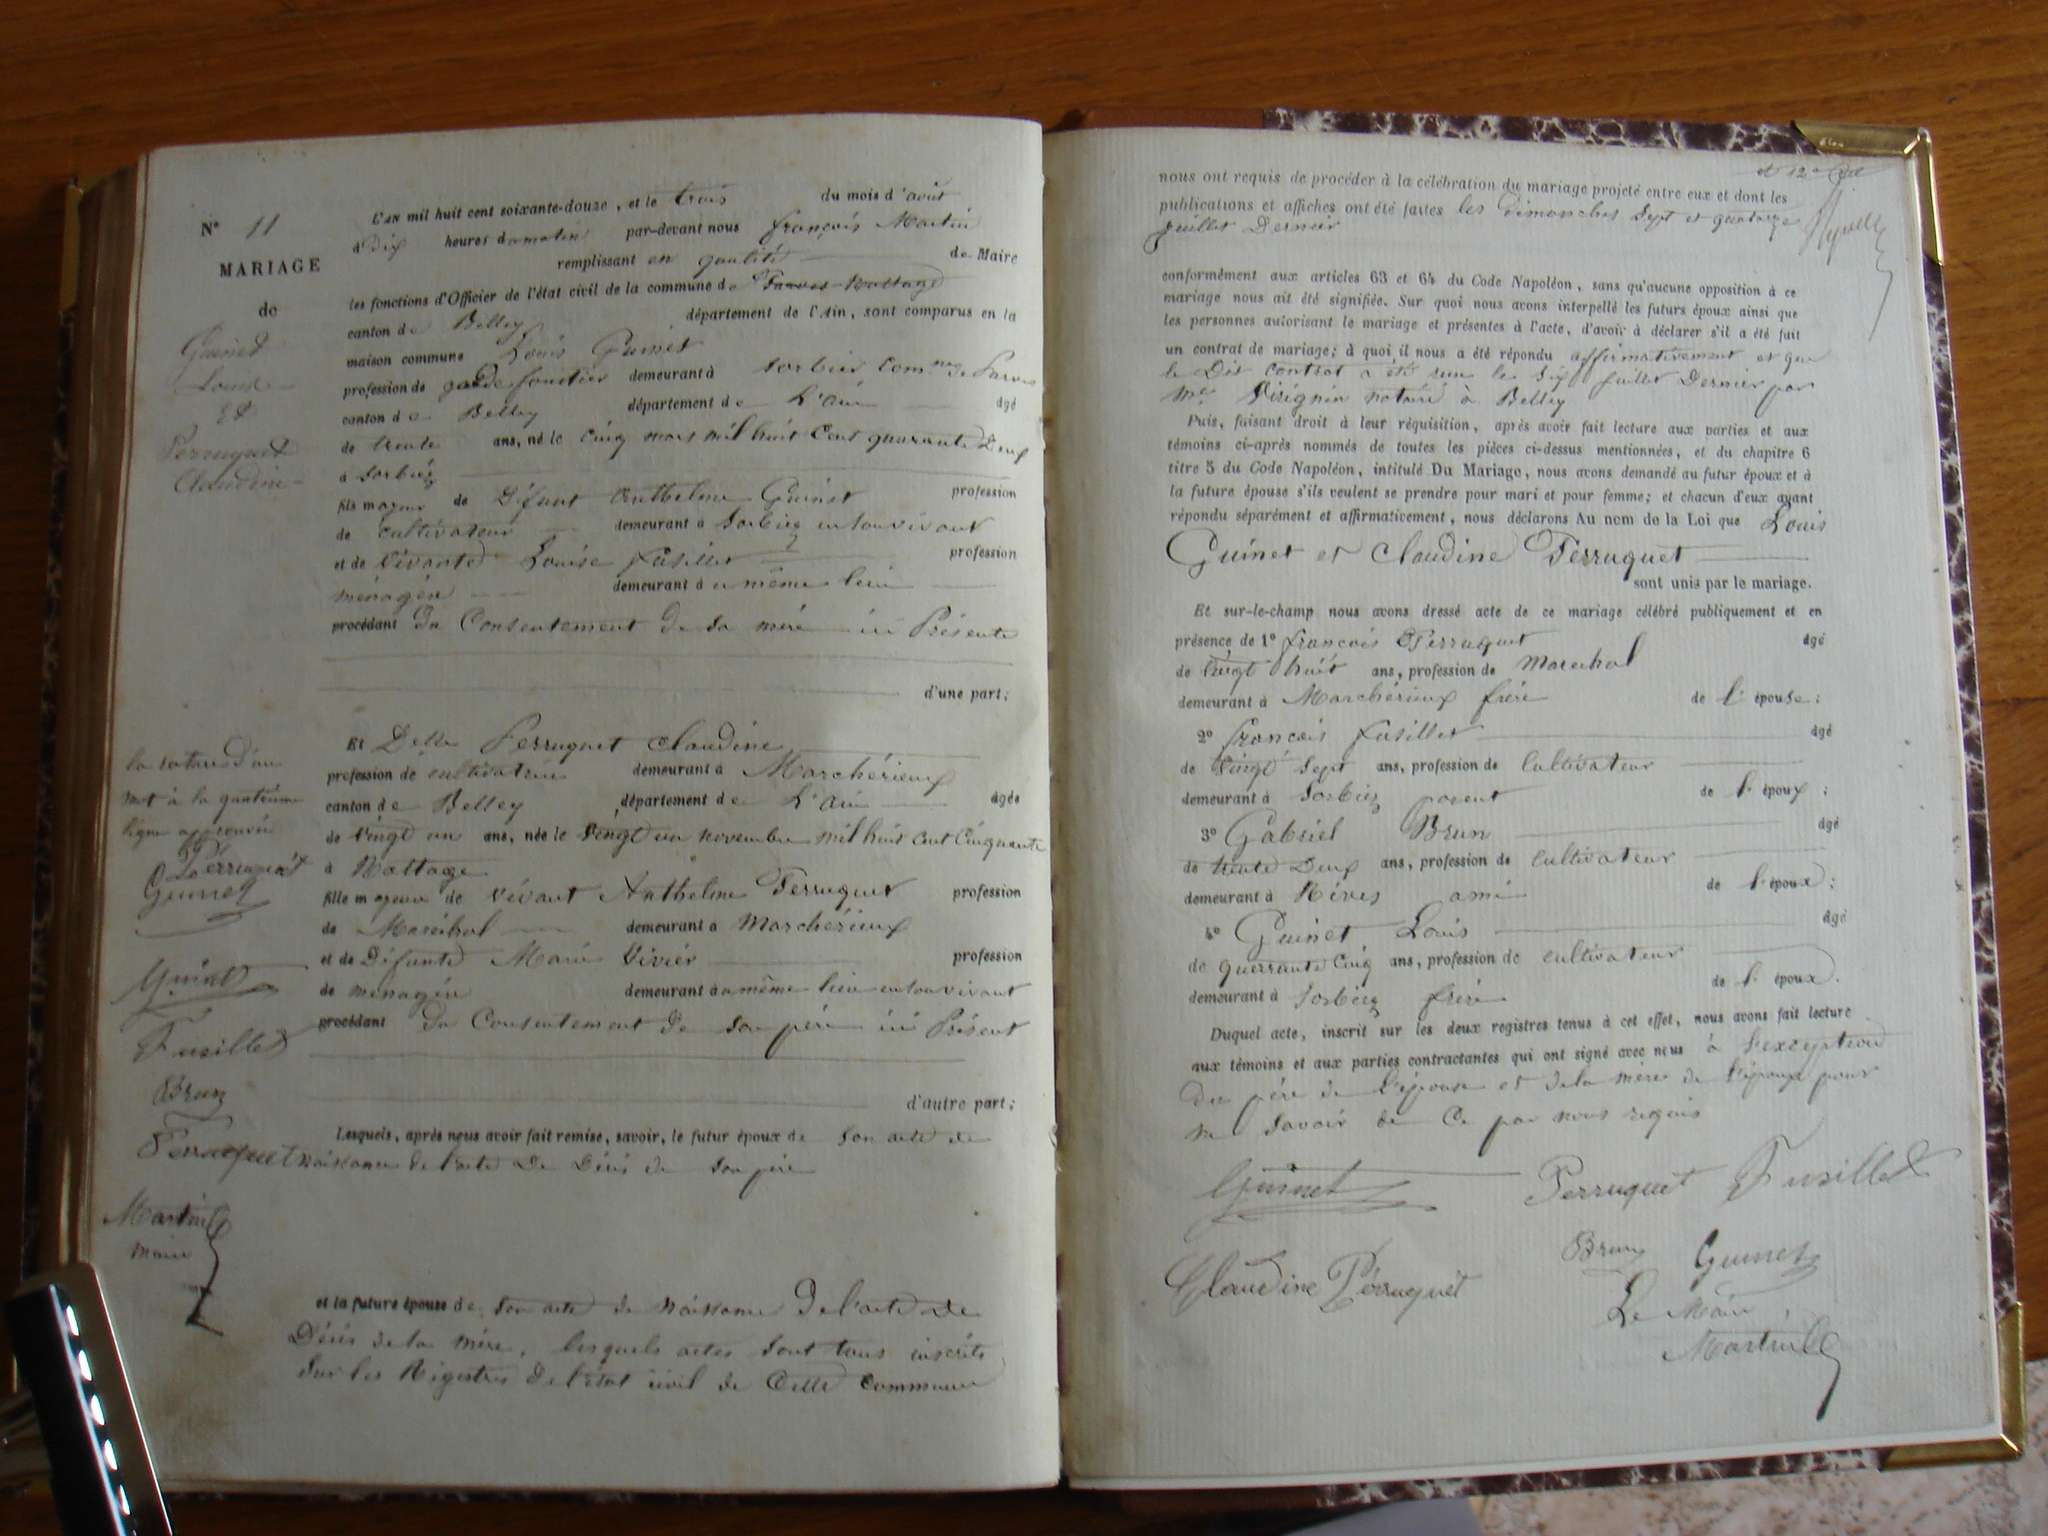 N° 11
MARIAGE
de
Guinet
Louis
Et
Perruquet
Claudine
L'AN mil huit cent soixante-douze, et le trois du mois d'août
à dix heures du matin par-devant nous françois Martin
remplissant en qualité de Maire
les fonctions d'Officier de l'état civil de la commune de Parves-Nattage
canton de Belley département de l'Ain, sont comparus en la
maison commune Louis Guinet
profession de garde forestier demeurant à Sorbier Comne de Parves
canton de Belley département de L'ain âgé
de trente ans, né le cinq mars mil huit Cent quarante Deux
à Sorbiez
fils majeur de Défunt Anthelme Guinet profession
de cultivateur demeurant à Sorbiez en son vivant
et de vivante Louise fusillet profession
ménagère demeurant à u même lieu
procédant du Consentement de sa mère ici Présente
d'une part;
Et Delle Perruquet Claudine
profession de cultivatrice demeurant à Marchérieux
canton de Belley département de L'ain âgée
de vingt un ans, née le vingt un novembre mil huit cent cinquante
à Nattage
fille majeure de vivant Anthelme Perruquet profession
de Maréchal demeurant à Marchérieux
et de Défunte Marie Vivier profession
de ménagère demeurant à u même lieu en son vivant
procédant du Consentement de son père ici Présent
d'autre part;
Lesquels, après nous avoir fait remise, savoir, le futur époux de son acte de
naissance de l'acte de Décès de son père
et la future épouse de son acte de naissance De l'acte de
Décès de la mère, lesquels actes sont tous inscrits
sur les Régistres de l'état civil de Cette commune
la rature d'un
mot à la quatrième
ligne approuvée
Perruquet
Guinet
Guinet
Fusillet
Brun
Perruquet
Martin
maire
nous ont requis de procéder à la célébration du mariage projeté entre eux et dont les
publications et affiches ont été faites les dimanches Sept et quatorze
juillet Dernier
conformément aux articles 63 et 64 du Code Napoléon, sans qu'aucune opposition à ce
mariage nous ait été signifiée. Sur quoi nous avons interpellé les futurs époux ainsi que
les personnes autorisant le mariage et présentes à l'acte, d'avoir à déclarer s'il a été fait
un contrat de mariage; à quoi il nous a été répondu affirmativement et que
le Dit contrat a été le six juillet Dernier par
Me notaire à Belley
Puis, faisant droit à leur réquisition, après avoir fait lecture aux parties et aux
témoins ci-après nommés de toutes les pièces ci-dessus mentionnées, et du chapitre 6
titre 5 du Code Napoléon, intitulé Du Mariage, nous avons demandé au futur époux et à
la future épouse s'ils veulent se prendre pour mari et pour femme; et chacun d'eux ayant
répondu séparément et affirmativement, nous déclarons Au nom de la Loi que Louis
Guinet et Claudine Perruquet
sont unis par le mariage.
Et sur-le-champ nous avons dressé acte de ce mariage célébré publiquement et en
présence de 1° françois Perruquet âgé
de vingt huit ans, profession de Maréchal
demeurant à Marchérieux frère de l'épouse;
2° françois fusillet âgé
de vingt sept ans, profession de Cultivateur
demeurant à Sorbiez parent de l'époux;
3° Gabriel Brun âgé
de trente Deux ans, profession de cultivateur
demeurant à ami de l'époux;
4° Guinet Louis âgé
de querrante cinq ans, profession de cultivateur
demeurant à Sorbiez frère de l'époux.
Duquel acte, inscrit sur les deux registres tenus à cet effet, nous avons fait lecture
aux témoins et aux parties contractantes qui ont signé avec nous à l'exception
du père de l'épouse et de la mère de l'époux pour
ne savoir de Ce par nous requis
Guinet Perruquet Fusillet
Brun Guinet
Claudine Pérruquet
Le Maire,
Martin